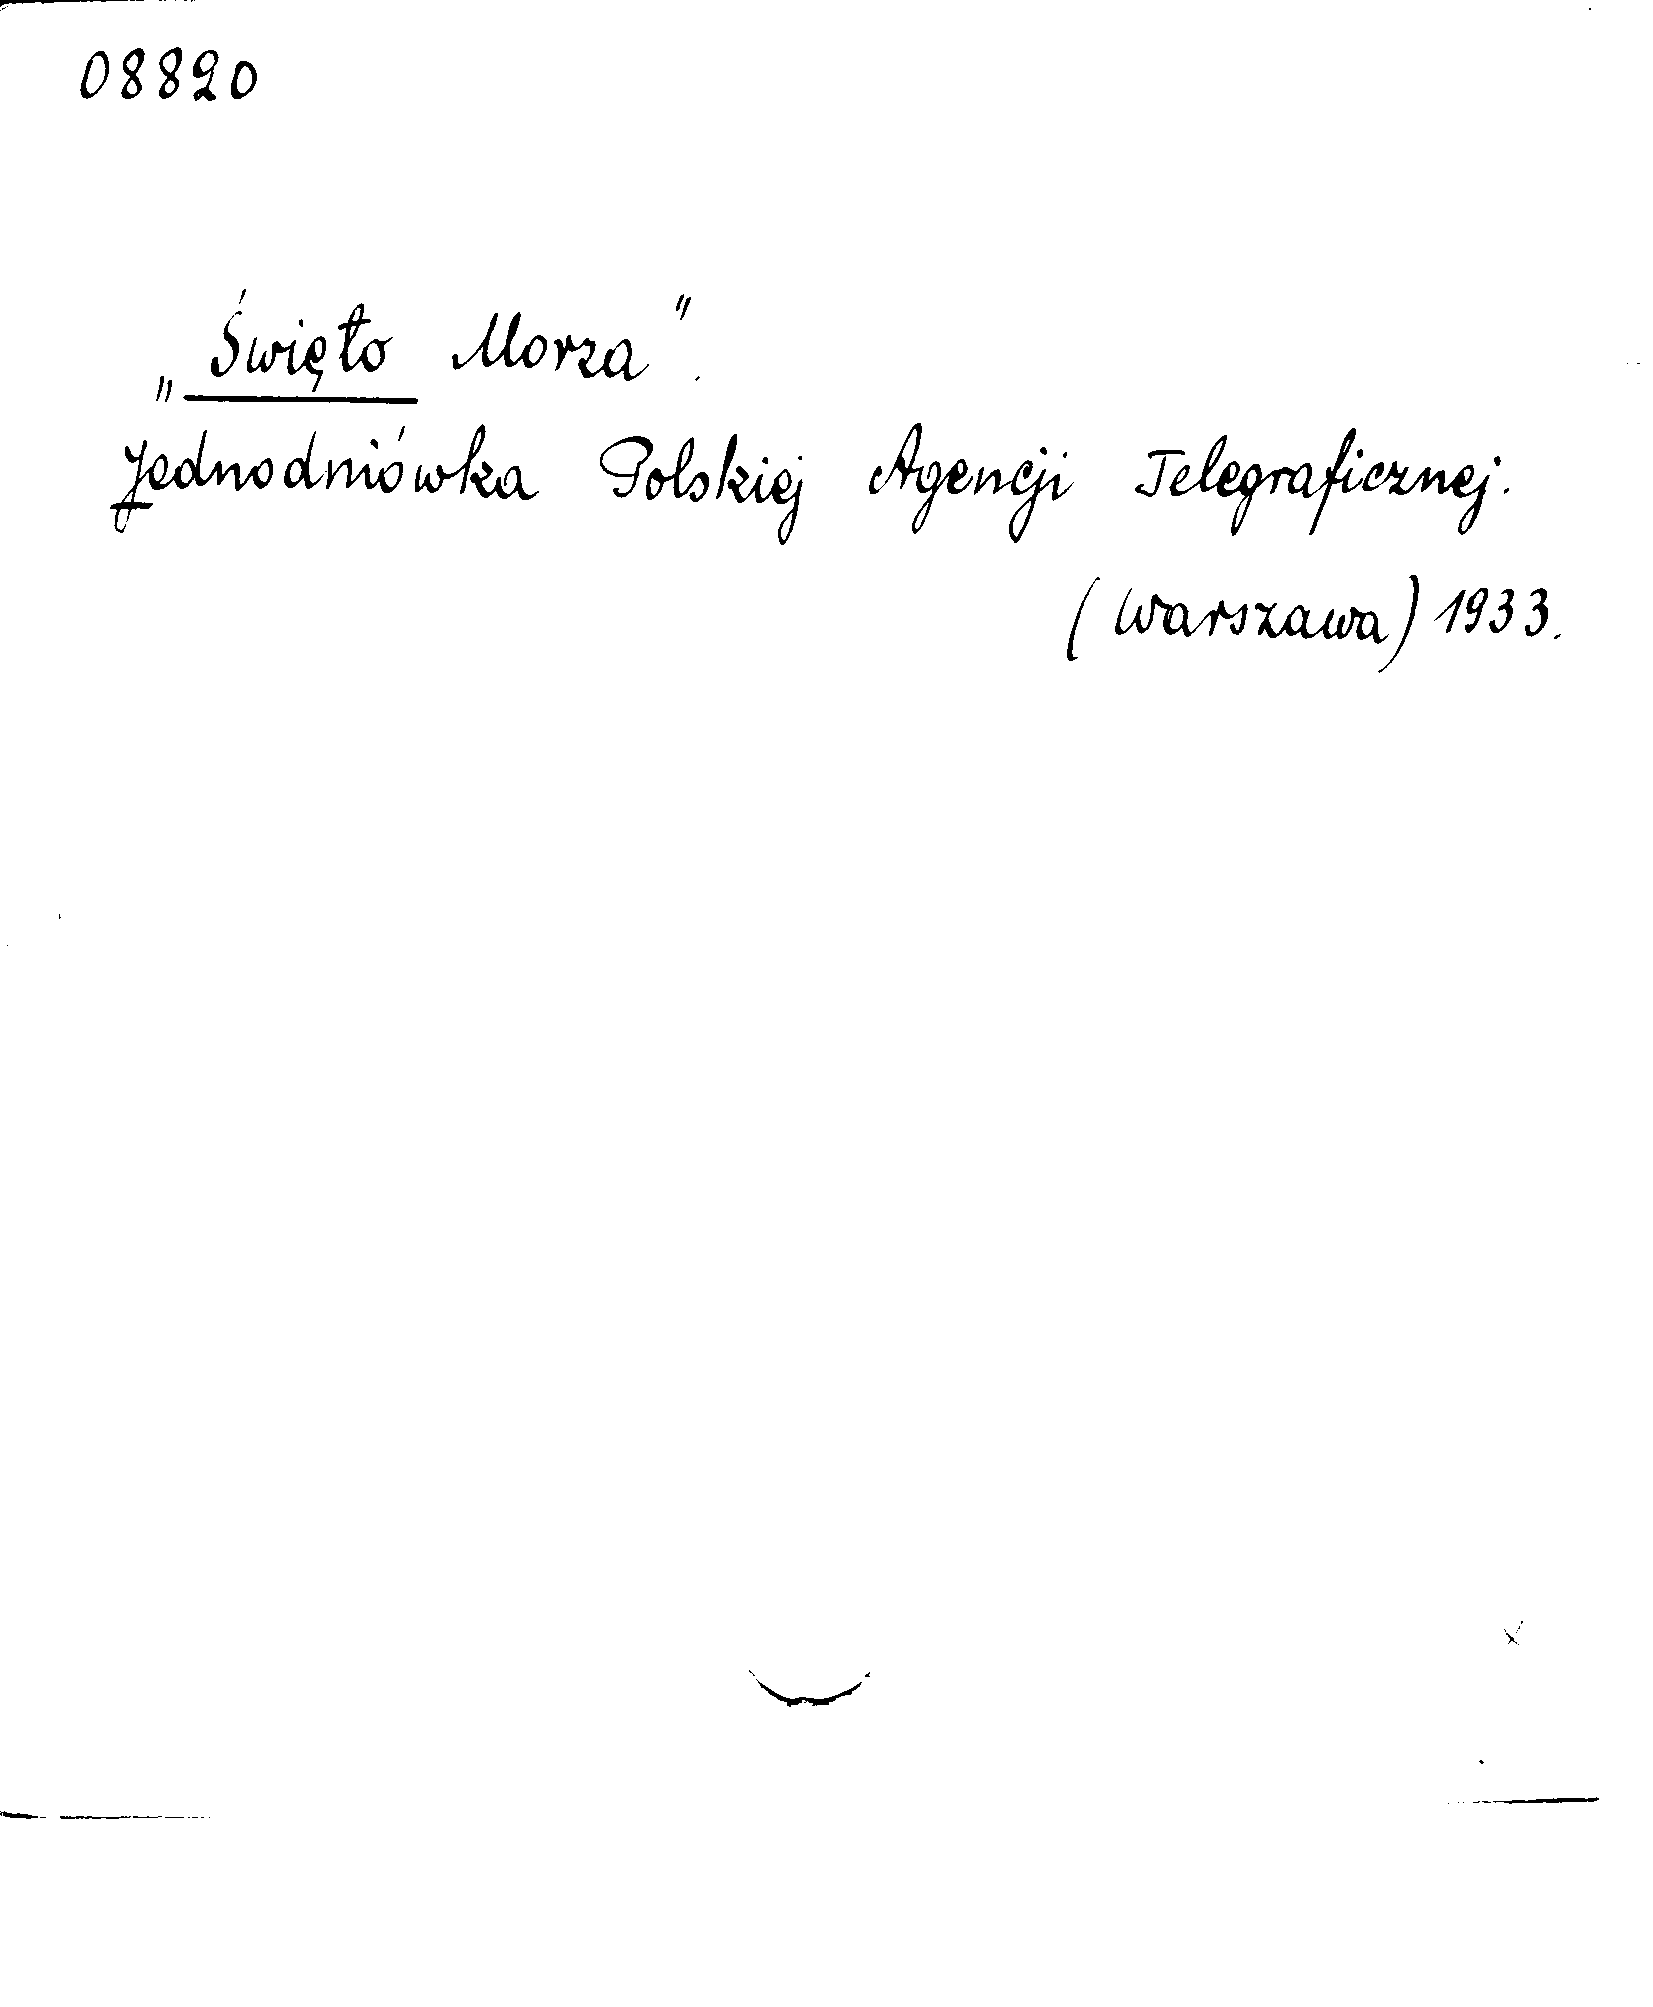 08820
„Święto Morza".
Jednodniówka Polskiej Agencji Telegraficznej.
(Warszawa) 1933.